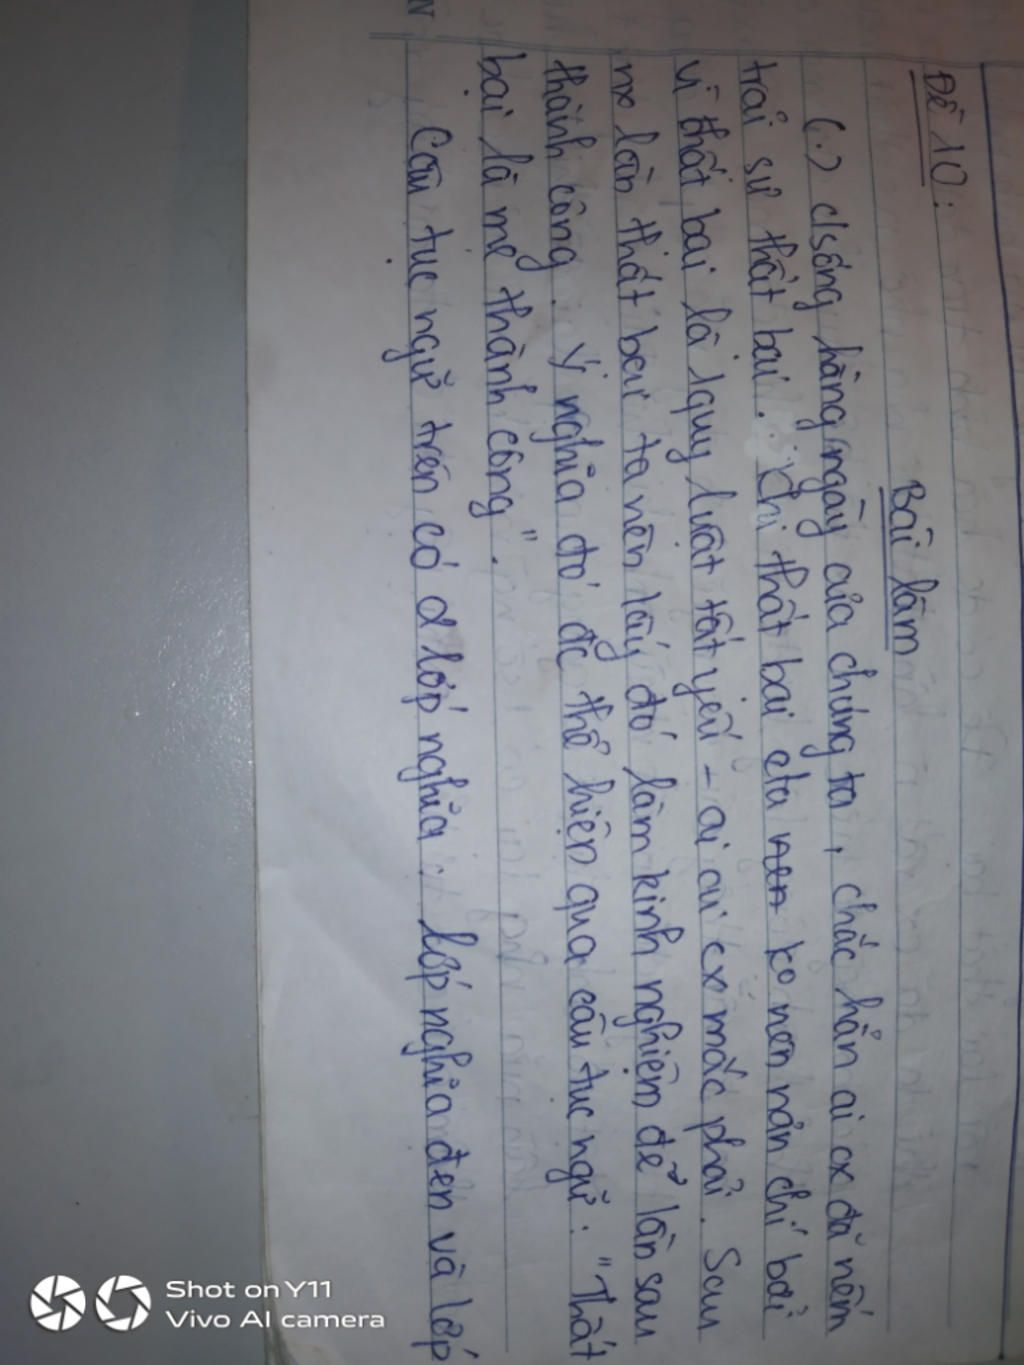 Đề 10:
Bài làm
(.) c/sống hằng ngày của chúng ta, chắc hẳn ai cx đã nếm
trải sự thất bại. Khi thất bại cta ko nên nản chí bởi
vì thất bại là 1 quy luật tất yếu - ai ai cx mắc phải. Sau
mx lần thất bại ta nên lấy đó làm kinh nghiệm để lần sau
thành công. Ý nghĩa đó đc thể hiện qua câu tục ngữ: "Thất
bại là mẹ thành công".
Câu tục ngữ trên có 2 lớp nghĩa. Lớp nghĩa đen và lớp
Shot on Y11
Vivo AI camera